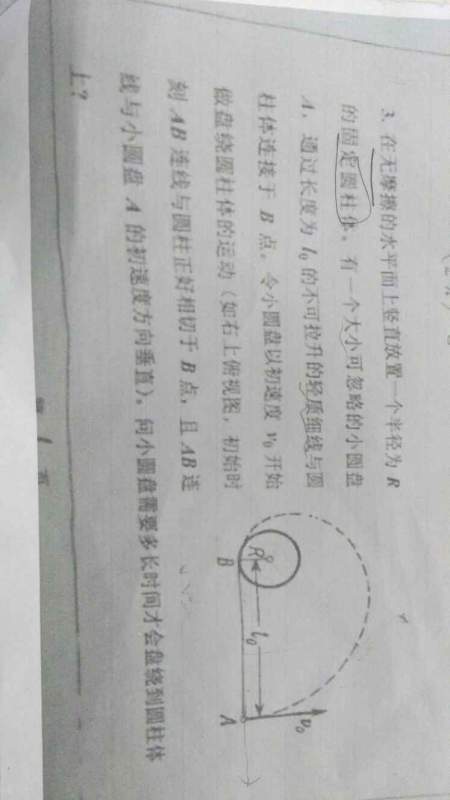 3. 在无摩擦的水平面上竖直放置一个半径为 R
的固定圆柱体。有一个大小可忽略的小圆盘
A，通过长度为 l₀ 的不可拉升的轻质细线与圆
柱体连接于 B 点。令小圆盘以初速度 v₀ 开始
做盘绕圆柱体的运动（如右上俯视图，初始时
刻 AB 连线与圆柱正好相切于 B 点，且 AB 连
线与小圆盘 A 的初速度方向垂直）。问小圆盘需要多长时间才会盘绕到圆柱体
上？
R
B
l₀
A
v₀